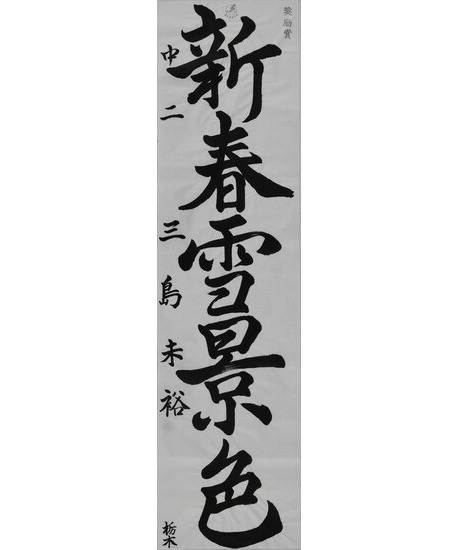 奨励賞
新春雪景色
中二 三島未裕
栃木